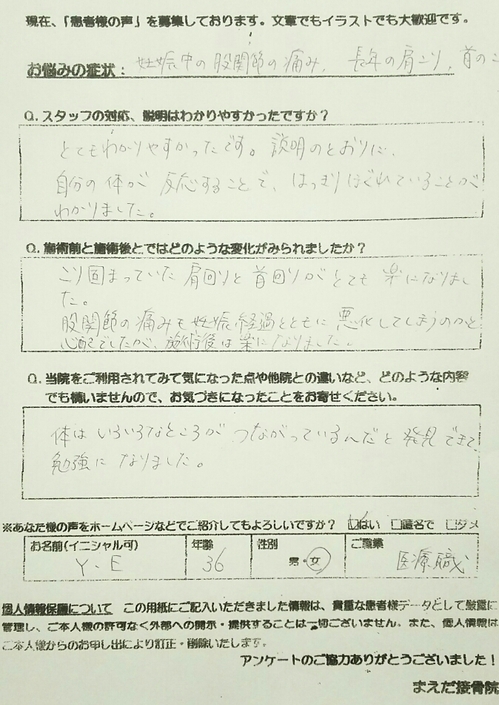 現在、「患者様の声」を募集しております。文章でもイラストでも大歓迎です。
お悩みの症状： 妊娠中の股関節の痛み、長年の肩こり、首のこ
Q．スタッフの対応、説明はわかりやすかったですか？
とてもわかりやすかったです。説明のとおりに、
自分の体が反応することで、はっきりほぐれていることが
わかりました。
Q．施術前と施術後とではどのような変化がみられましたか？
こり固まっていた肩回りと首回りがとても楽になりまし
た。
股関節の痛みも妊娠経過とともに悪化してしまうのかと
心配でしたが、施術後は楽になりました。
Q．当院をご利用されてみて気になった点や他院との違いなど、どのような内容
でも構いませんので、お気づきになったことをお寄せください。
体はいろいろなところがつながっているんだと発見できて
勉強になりました。
※あなた様の声をホームページなどでご紹介してもよろしいですか？ ☑はい □匿名で □ダメ
お名前(イニシャル可) 年齢 性別 ご職業
Y・E 36 男・女 医療職
個人情報保護について この用紙にご記入いただきました情報は、貴重な患者様データとして厳重に
管理し、ご本人様の許可なく外部への開示・提供することは一切ございません。また、個人情報は
ご本人様からのお申し出により訂正・削除いたします。
アンケートのご協力ありがとうございました！
まえだ接骨院